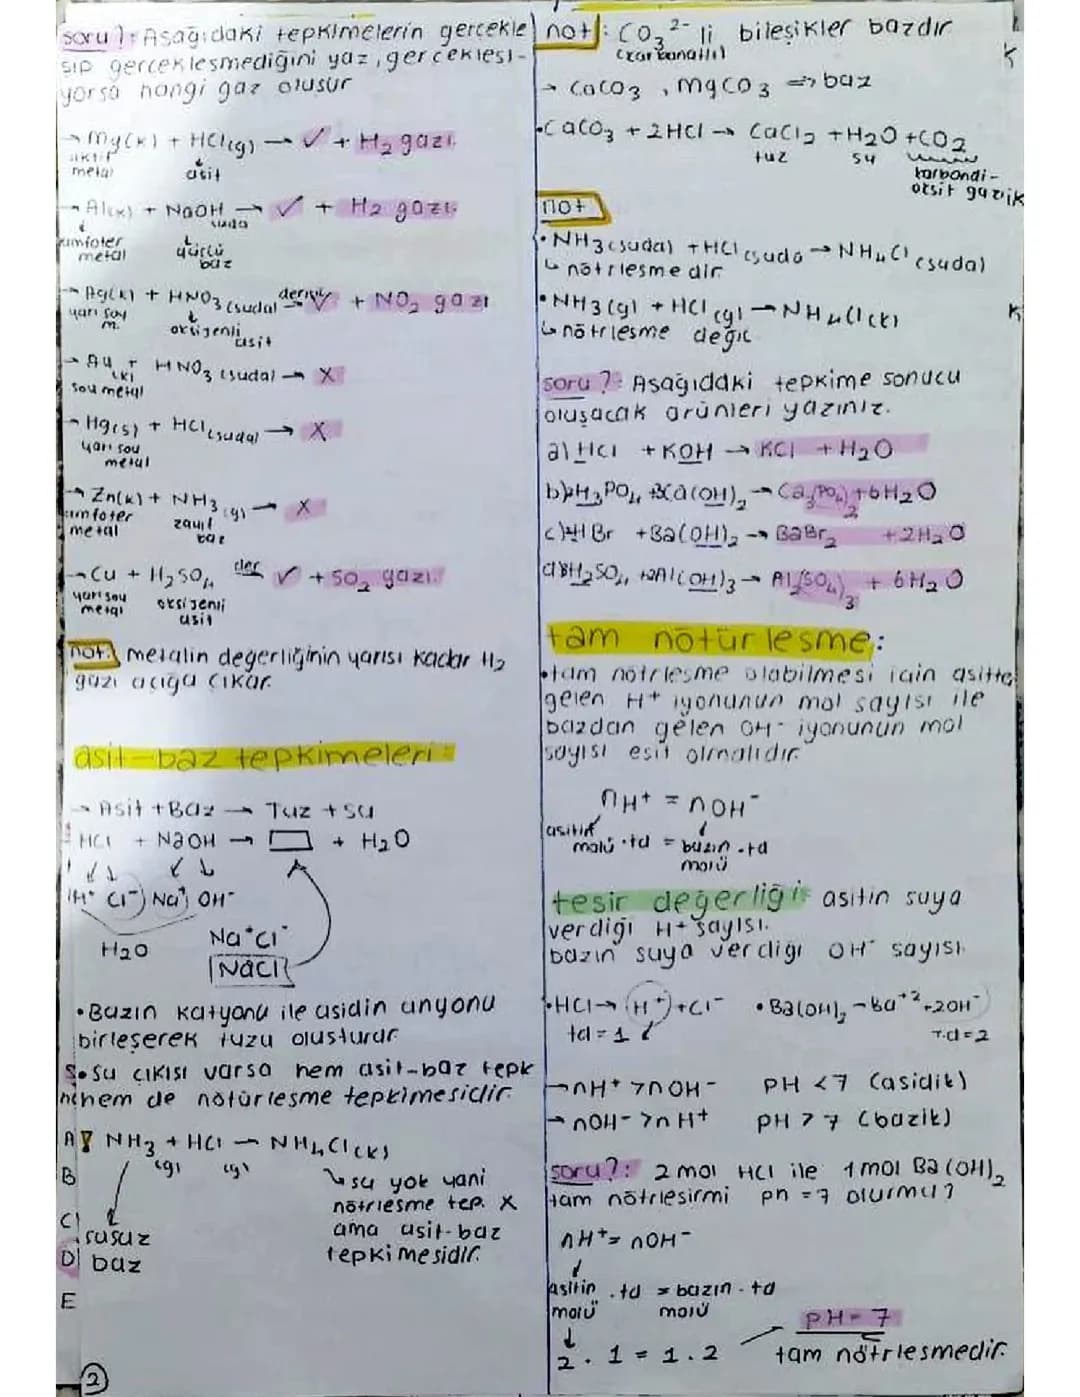 soru ?: Aşağıdaki tepkimelerin gerçekle
şip gerçekleşmediğini yaz, gerçekleşi-
yorsa hangi gaz oluşur
→ Mg(k) + HCl(g) → ✓ + H2 gazı.
aktif metal
asit
→ Al(k) + NaOH → ✓ + H2 gazı.
suda
amfoter metal
güçlü baz
→ Ag(k) + HNO3 (suda) derişik → ✓ + NO2 gazı
yarı soy m.
oksijenli asit
→ Au (k) + HNO3 (suda) → X
soy metal
→ Hg(s) + HCl (suda) → X
yarı soy metal
→ Zn(k) + NH3 (g) → X
amfoter metal
zayıf baz
→ Cu + H2SO4 der → ✓ + SO2 gazı.
yarı soy metal
oksijenli asit
not: metalin değerliğinin yarısı kadar H2
gazı açığa çıkar.
asit-baz tepkimeleri:
→ Asit + Baz → Tuz + su
HCl + NaOH → □ + H2O
H+ Cl- Na+ OH-
H2O
Na+Cl-
NaCl
• Bazın katyonu ile asidin anyonu
birleşerek tuzu oluşturur.
• Su çıkışı varsa hem asit-baz tepk
hem de nötürleşme tepkimesidir.
NH3 + HCl → NH4Cl(k)
(g) (g)
susuz baz
↳ su yok yani
nötrleşme tep. X
ama asit-baz
tepkimesidir.
A
B
C)
D)
E
2
not: CO3 2- li bileşikler bazdır
(karbonatlı)
→ CaCO3, MgCO3 => baz
• CaCO3 + 2HCl → CaCl2 + H2O + CO2
tuz su karbondi-
oksit gazı
not
• NH3 (suda) + HCl (suda → NH4Cl (suda)
↳ nötrleşmedir
• NH3 (g) + HCl (g) → NH4Cl (k)
↳ nötrleşme değil
soru ?: Aşağıdaki tepkime sonucu
oluşacak ürünleri yazınız.
a) HCl + KOH → KCl + H2O
b) 2H3PO4 + 3Ca(OH)2 → Ca3(PO4)2 + 6H2O
c) 2HBr + Ba(OH)2 → BaBr2 + 2H2O
d) 3H2SO4 + 2Al(OH)3 → Al2(SO4)3 + 6H2O
tam nötürleşme:
• tam nötrleşme olabilmesi için asitte
gelen H+ iyonunun mol sayısı ile
bazdan gelen OH- iyonunun mol
sayısı eşit olmalıdır.
nH+ = nOH-
asitin molü . td = bazın molü . td
tesir değerliği: asitin suya
verdiği H+ sayısı.
bazın suya verdiği OH- sayısı.
• HCl → H+ + Cl- • Ba(OH)2 → Ba+2 + 2OH-
td = 1 T.d = 2
→ nH+ > nOH- PH < 7 (asidik)
→ nOH- > nH+ pH > 7 (bazik)
soru ?: 2 mol HCl ile 1 mol Ba(OH)2
tam nötrleşirmi ph = 7 olurmu?
nH+ = nOH-
asitin molü . td = bazın molü . td
2 . 1 = 1 . 2
pH = 7
tam nötrleşmedir.